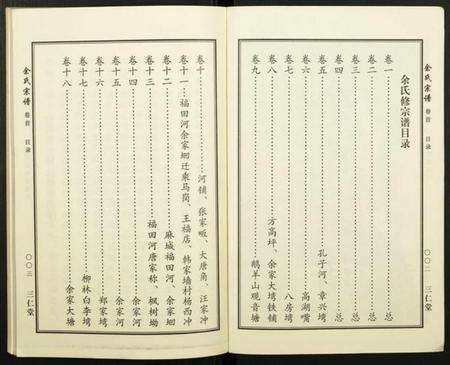 余氏宗谱 卷首 目录 〇〇二 三仁堂
余氏修宗谱目录
卷一……总
卷二……总
卷三……总
卷四……总
卷五……孔子河、章兴塆
卷六……高湖嘴
卷七……八房塆
卷八……方高坪、余家大塆铁铺
卷九……鹅羊山观音塘
卷十……河铺、张家畈、大唐角、汪家冲
卷十一……福田河余家垇迁乘马岗、王福店、韩家墙村杨西冲
卷十二……麻城福田河、余家垇
卷十三……福田河唐家称、枫树坳
卷十四……余家河
卷十五……余家河
卷十六……郑家塆
卷十七……柳林白李塆
卷十八……余家大塘
余氏宗谱 卷首 目录 〇〇三 三仁堂